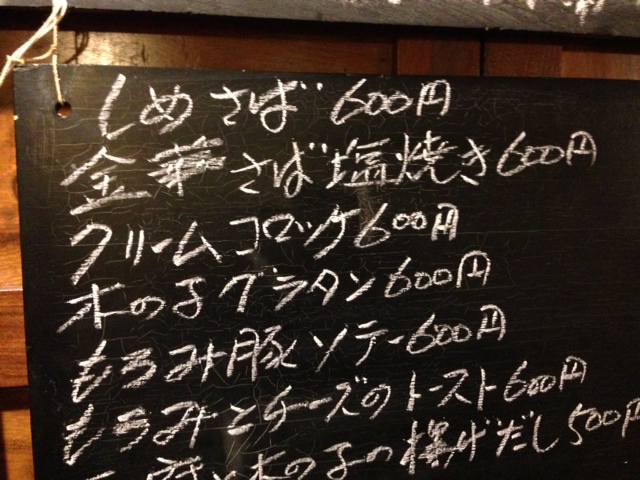 しめさば 600円
金華さば塩焼き 600円
クリームコロッケ 600円
木の子グラタン 600円
もろみ豚ソテー 600円
もろみとチーズのトースト 600円
と木の子の揚げだし 500円